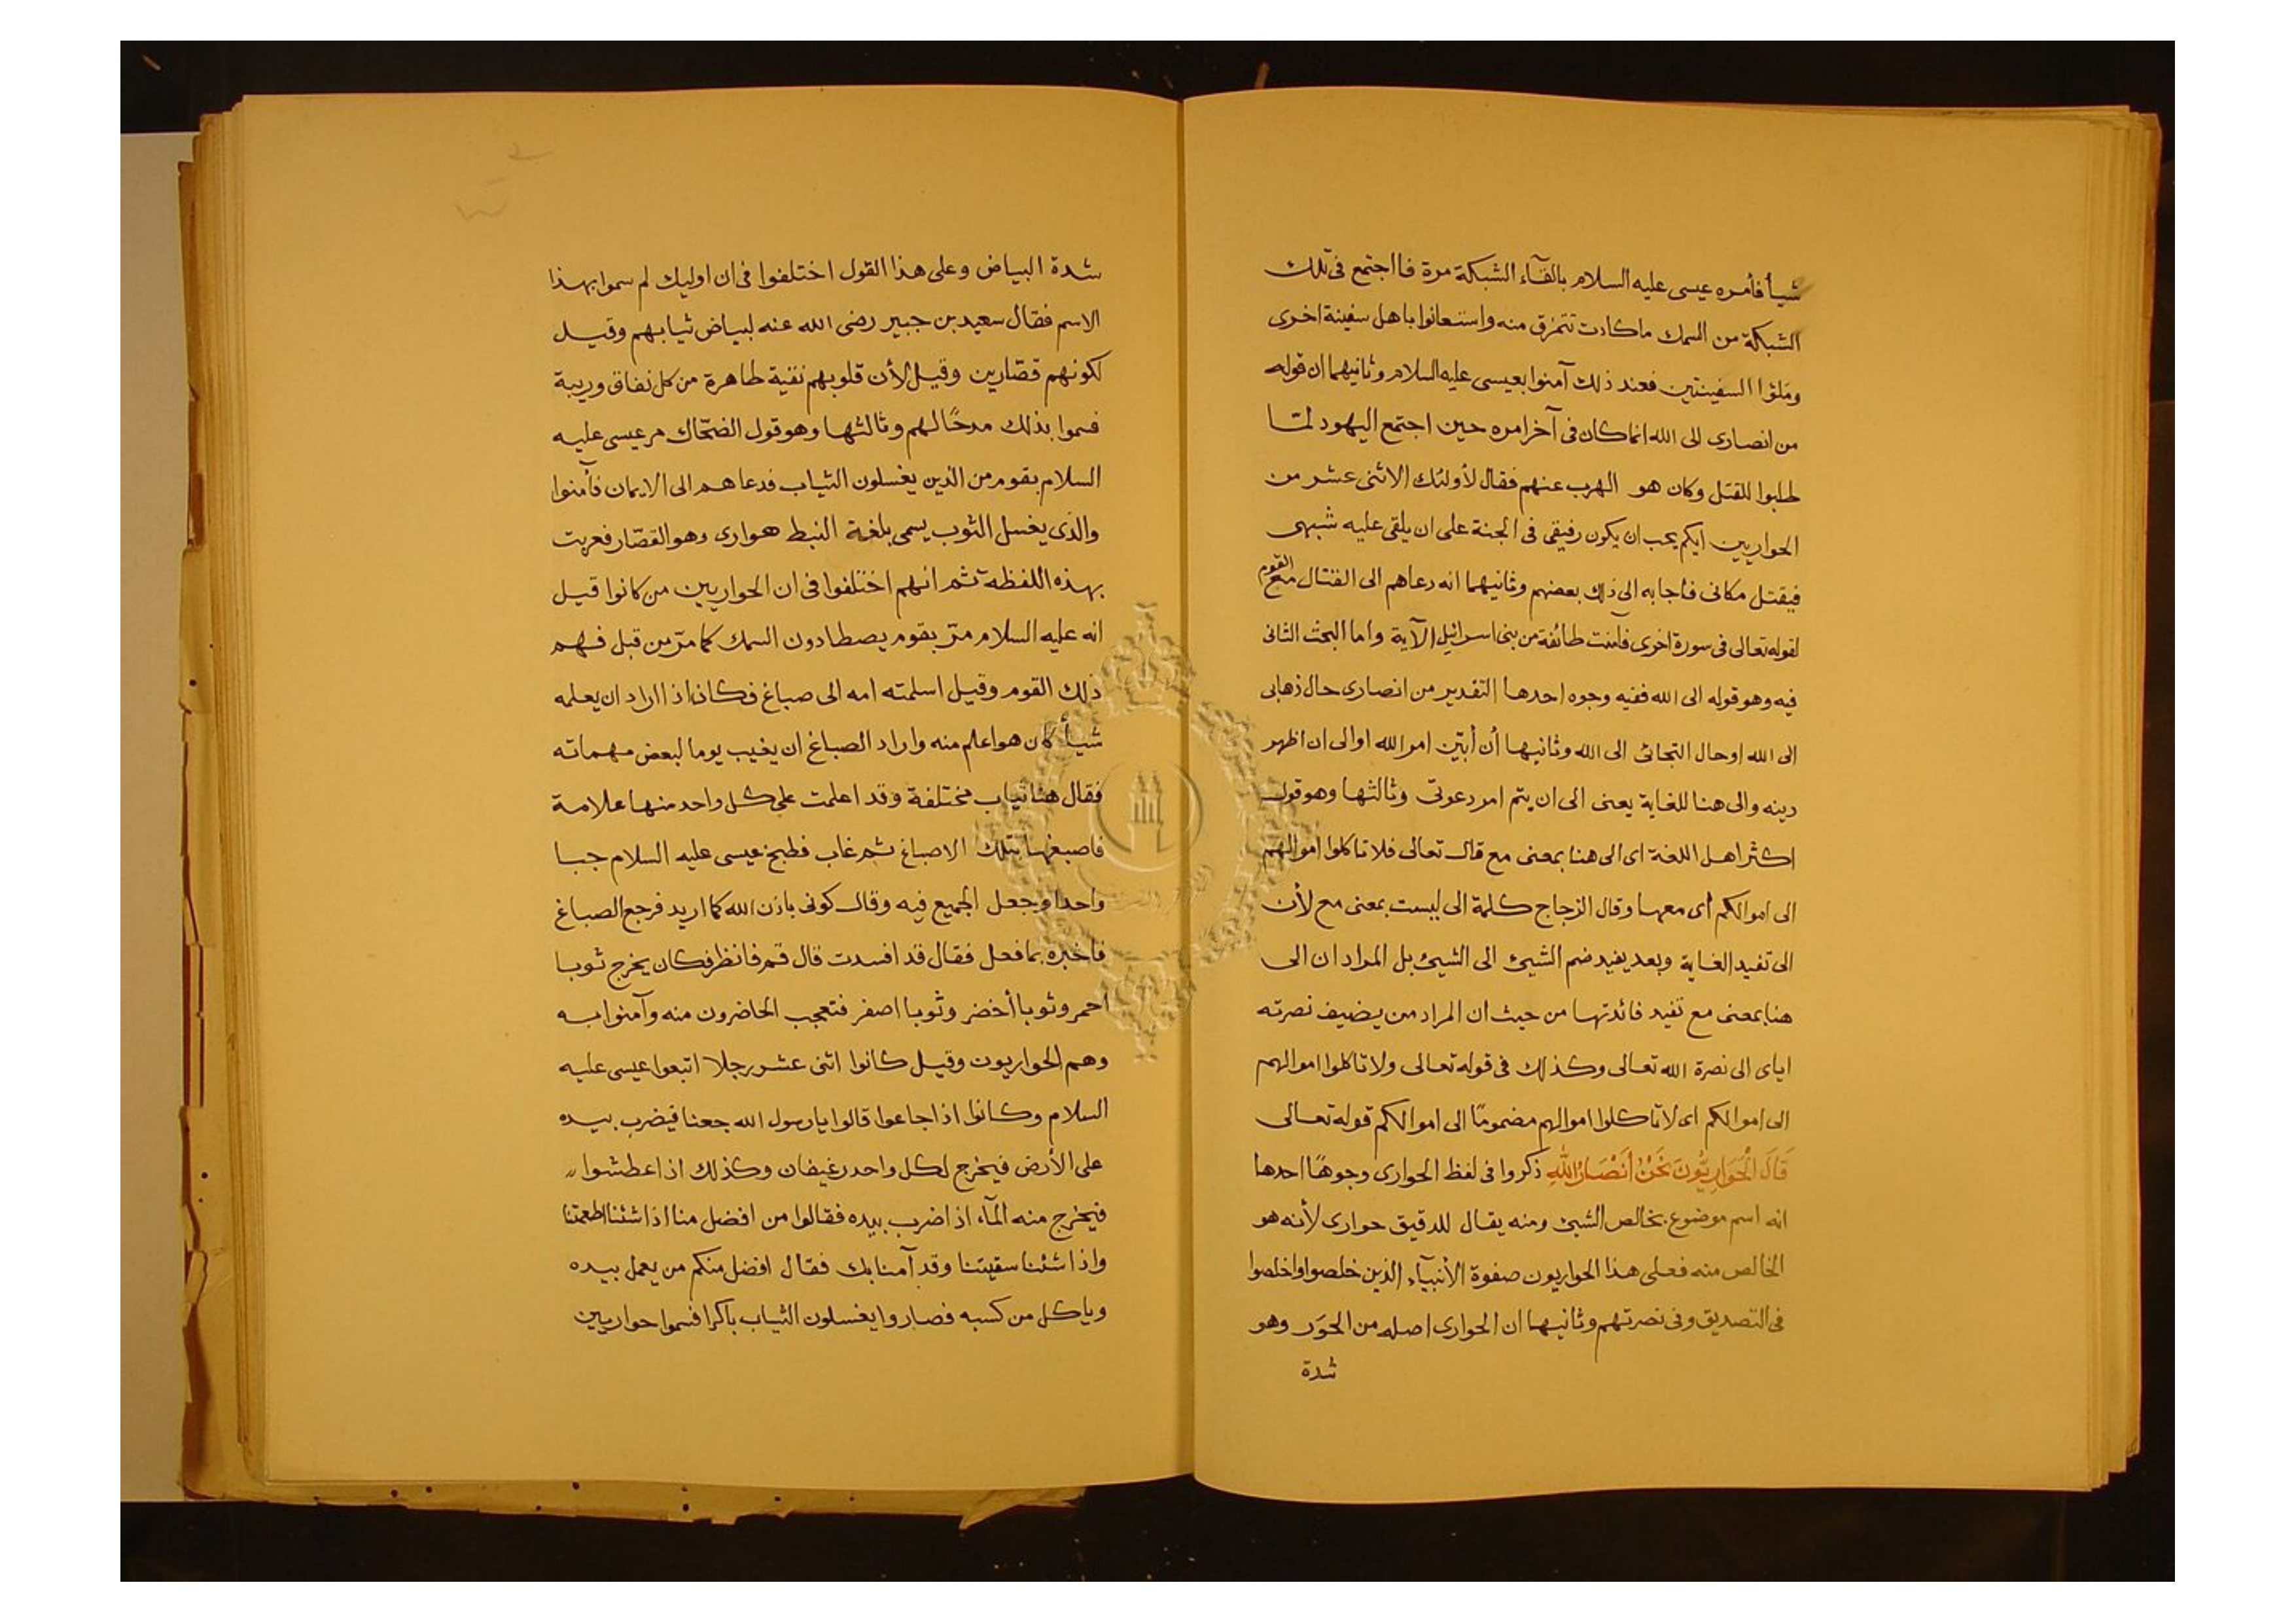 شيأ فأمره عيسى عليه السلام بالقآء الشبكة مرة فااجتمع فى تلك
الشبكة من السمك ماكادت تتمزق منه واستعانوا باهل سفينة اخرى
وملؤا السفينتين فعند ذلك آمنوا بعيسى عليه السلام وثانيهما ان قوله
من انصارى الى الله انما كان فى آخر امره حين اجتمع اليهود لمّا
طلبوا للقتل وكان هو الهرب عنهم فقال لأولئك الاثنى عشر من
الحواريين ايكم يحب ان يكون رفيقى فى الجنة على ان يلقى عليه شبهى
فيقتل مكانى فأجابه الى ذلك بعضهم وثانيهما انه دعاهم الى القتال مع القوم
لقوله تعالى فى سورة اخرى فآمنت طائفة من بنى اسرائيل الآية واما البحث الثانى
فيه وهو قوله الى الله ففيه وجوه احدها التقدير من انصارى حال ذهابى
الى الله اوحال التجائى الى الله وثانيها أن أبيّن امر الله اوالى ان اظهر
دينه والى هنا للغاية يعنى الى ان يتم امر دعوتى وثالثها وهو قول
اكثر اهل اللغة اى الى هنا بمعنى مع قال تعالى فلا تاكلوا اموالهم
الى اموالكم أى معها وقال الزجاج كلمة الى ليست بمعنى مع لأن
الى تفيد الغاية وبعد يفيد ضم الشيئ الى الشيئ بل المراد ان الى
هنا بمعنى مع تفيد فائدتها من حيث ان المراد من يضيف نصرته
اياى الى نصرة الله تعالى وكذلك فى قوله تعالى ولا تاكلوا اموالهم
الى اموالكم اى لا تاكلوا اموالهم مضمومًا الى اموالكم قوله تعالى
قَالَ الْحَوَارِيُّونَ نَحْنُ أَنْصَارُ اللهِ ذكروا فى لفظ الحوارى وجوهًا احدها
انه اسم موضوع بخالص الشيئ ومنه يقال للدقيق حوارى لأنه هو
الخالص منه فعلى هذا الحواريون صفوة الأنبيآء الذين خلصوا واخلصوا
فى التصديق وفى نصرتهم وثانيها ان الحوارى اصله من الحَوَر وهو
شدة
شدة البياض وعلى هذا القول اختلفوا فى ان اوليك لم سموا بهذا
الاسم فقال سعيد بن جبير رضى الله عنه لبياض ثيابهم وقيل
لكونهم قصّارين وقيل لأن قلوبهم نقية طاهرة من كل نفاق وريبة
فسموا بذلك مدحًا لهم وثالثها وهو قول الضحّاك مر عيسى عليه
السلام بقوم من الذين يغسلون الثياب فدعاهم الى الايمان فآمنوا
والذى يغسل الثوب يسمى بلغة النبط هوارى وهو القصّار فعربت
بهذه اللفظة ثم انهم اختلفوا فى ان الحواريين من كانوا قيل
انه عليه السلام مرّ بقوم يصطادون السمك كما مرّ من قبل فهم
ذلك القوم وقيل اسلمته امه الى صباغ فكان اذا اراد ان يعلمه
شيأ كان هو اعلم منه واراد الصباغ ان يغيب يوما لبعض مهماته
فقال هنا ثياب مختلفة وقد اعلمت على كل واحد منها علامة
فاصبغها بتلك الاصباغ ثم غاب فطبخ عيسى عليه السلام جبا
واحدا وجعل الجميع فيه وقال كونى باذن الله كما اريد فرجع الصباغ
فأخبره بما فعل فقال قد افسدت قال قم فانظر فكان يخرج ثوبا
احمر وثوبا أخضر وثوبا اصفر فتعجب الحاضرون منه وآمنوا به
وهم الحواريون وقيل كانوا اثنى عشر رجلا اتبعوا عيسى عليه
السلام وكانوا اذا جاعوا قالوا يا رسول الله جعنا فيضرب بيده
على الأرض فيخرج لكل واحد رغيفان وكذلك اذا عطشوا
فيخرج منه المآء اذا ضرب بيده فقالوا من افضل منا اذا شئنا اطعمتنا
واذا شئنا سقيتنا وقد آمنا بك فقال افضل منكم من يعمل بيده
وياكل من كسبه فصاروا يغسلون الثياب باكرا فسموا حواريين